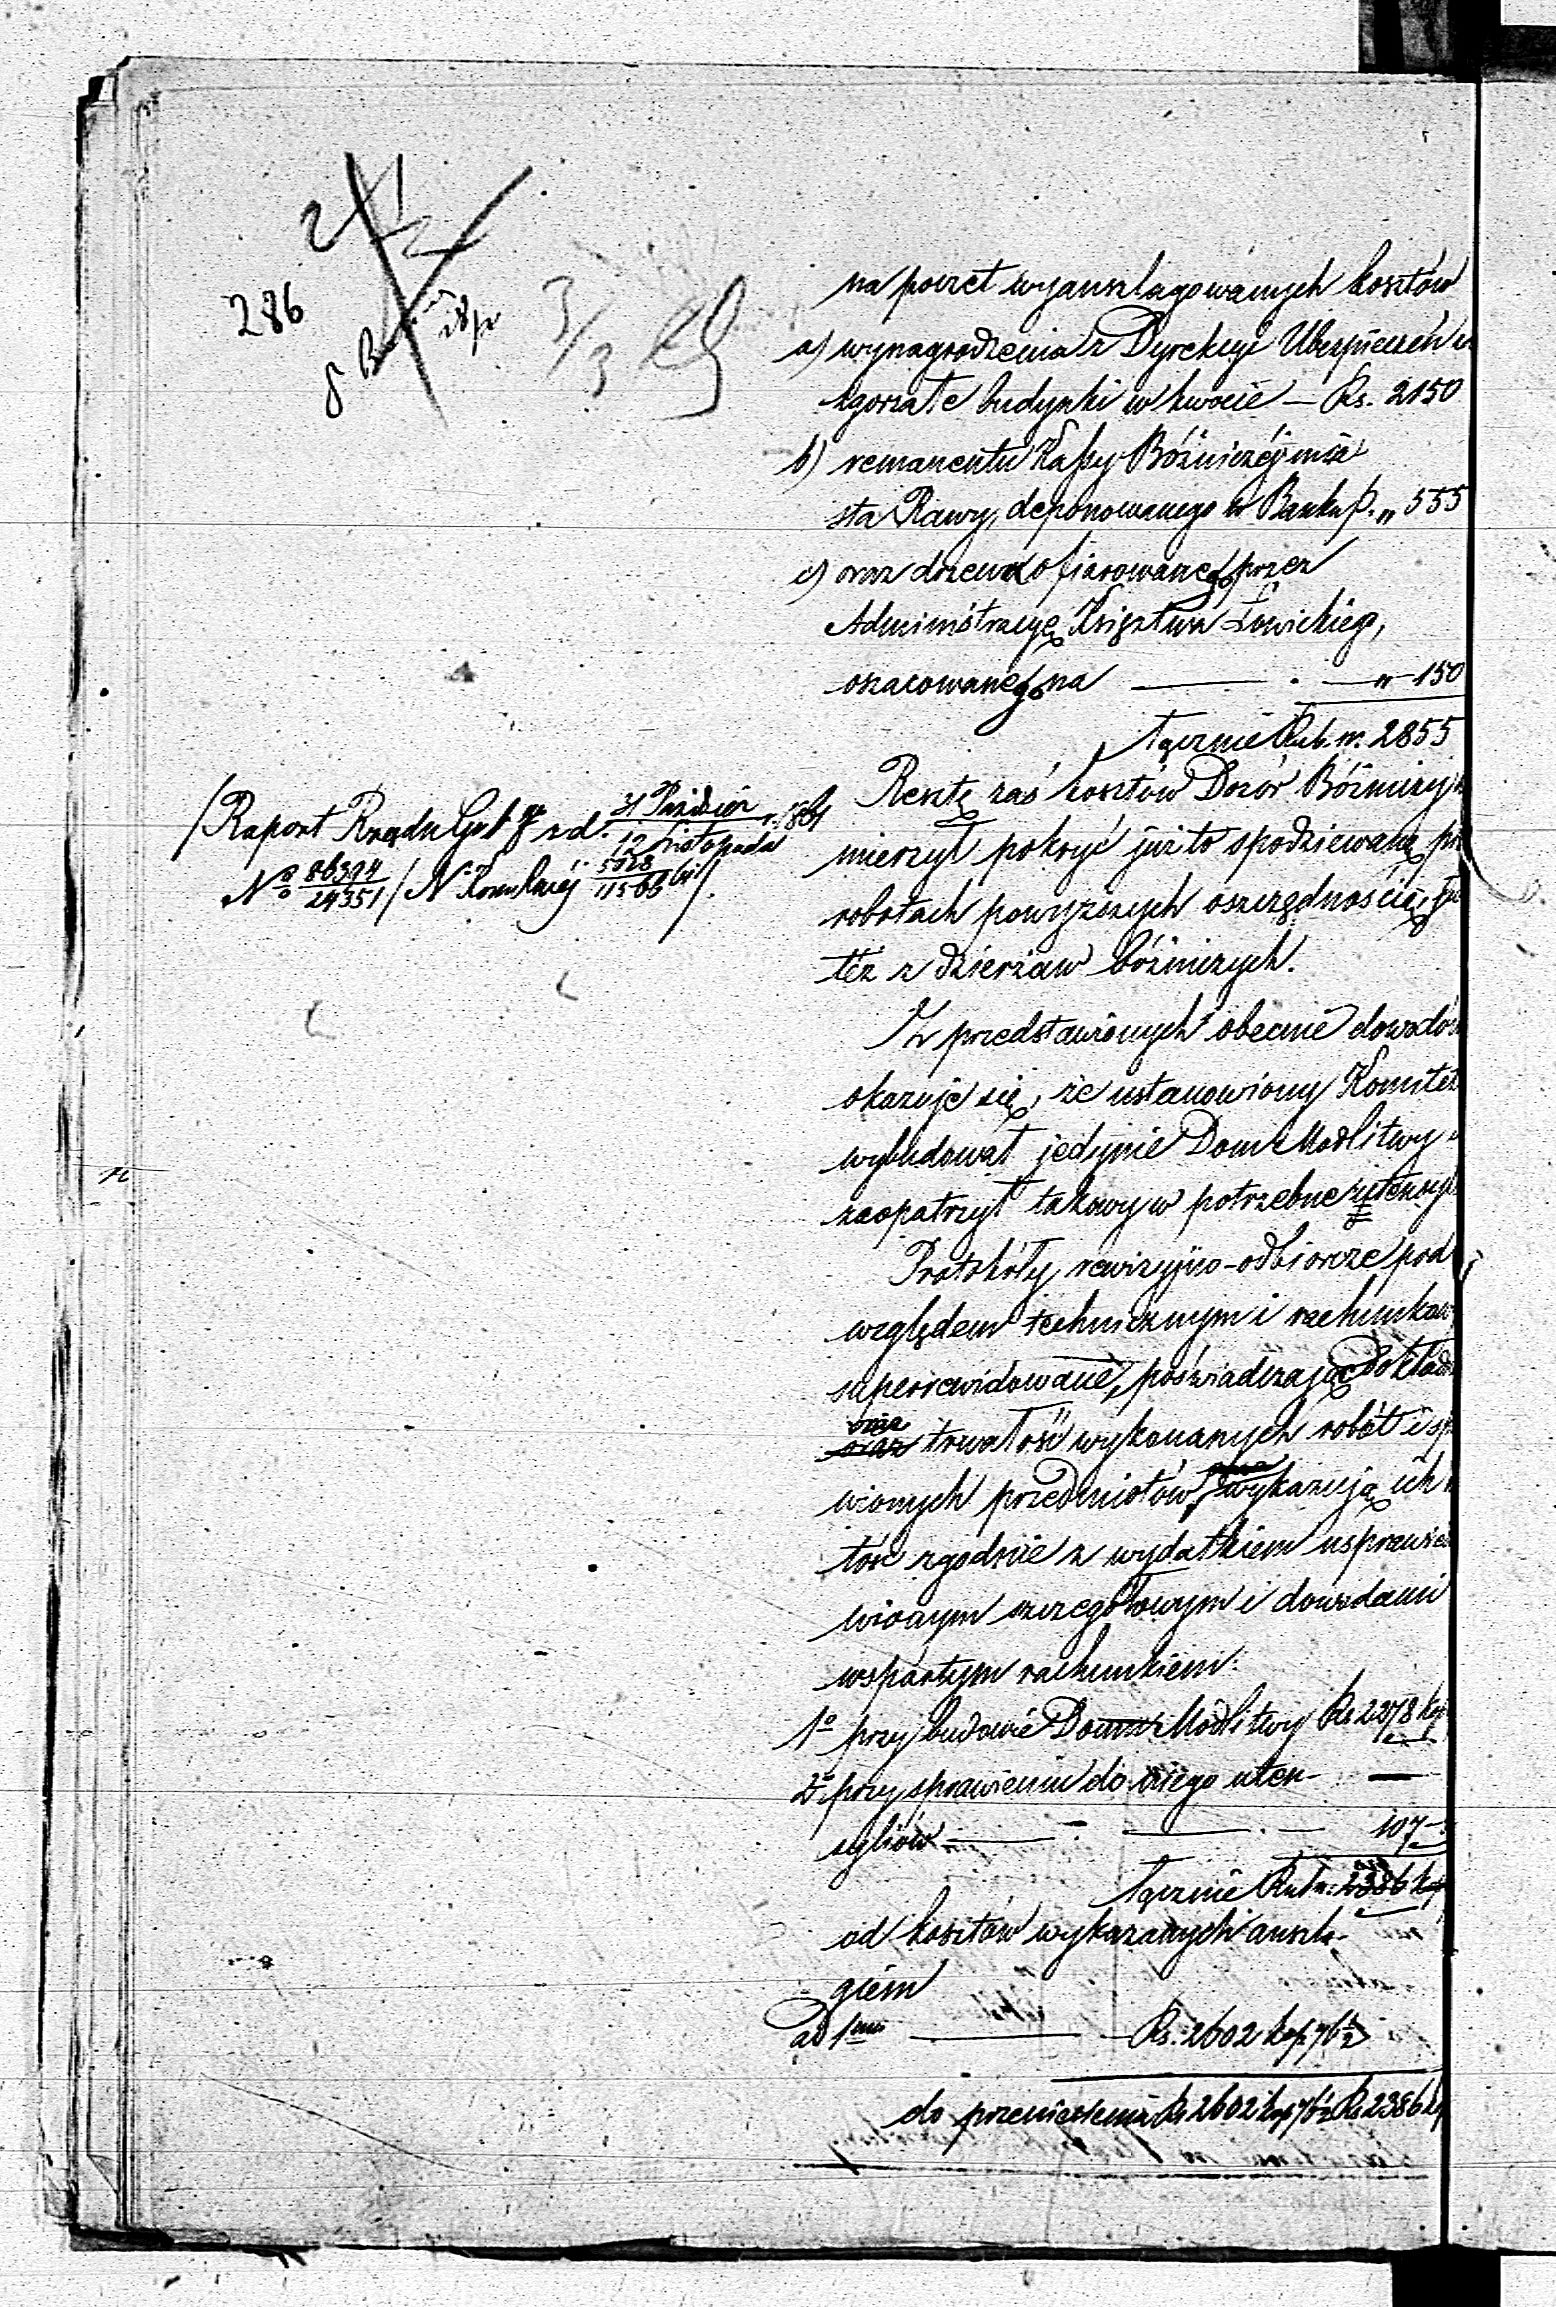 286
3/3
na poczet wyanszlagowanych kosztów
a) wynagrodzenia z Dyrekcyi Ubezpieczeń
zgorzałe budynki w kwocie — Rs. 2150
b) remanentu Kassy Bóźniczéj mia
sta Rawy, deponowanego w Banku P. „ 555
c) oraz drzewa ofiarowanego przez
Administracyę Księztwa Łowickiego,
oszacowanego na — . — „ 150
łącznie Rub. sr. 2855
/Raport Rządu Gub. z d. 31 Paździer / 12 Listopada r. 1861
No 86394/24351 / N. Kom. Rząd. 5028/11566 /.
Resztę zaś kosztów Dozór Bóźniczy
mierzył pokryć już to spodziewaną
robotach powyższych oszczędnością,
też z dzierżaw bóźniczych.
Z przedstawionych obecnie dowodów
okazuje się, że ustanowiony Komitet
wybudował jedynie Dom Modlitwy
zaopatrzył takowy w potrzebne utensyl
Protokóły rewizyjno-odbiorcze pod
względem technicznym i rachunkow
superrewidowane, poświadczając dokład
oraz trwałość wykonanych robót i sp
wionych przedmiotów, wykazują ich
tość zgodnie z wydatkiem usprawied
wionym szczegółowym i dowodami
wspartym rachunkiem:
1o przy budowie Domu Modlitwy Rs 2278 kp
2o przy sprawieniu do niego uten- —
syliów — . — . — 107 —
łącznie Rub. sr. 2386 k
od kosztów wykazanych anszla-
giem
ad 1mo — Rs. 2602 kop. 76½
do przeniesienia Rs 2602 kop 76½ Rs 2386 k